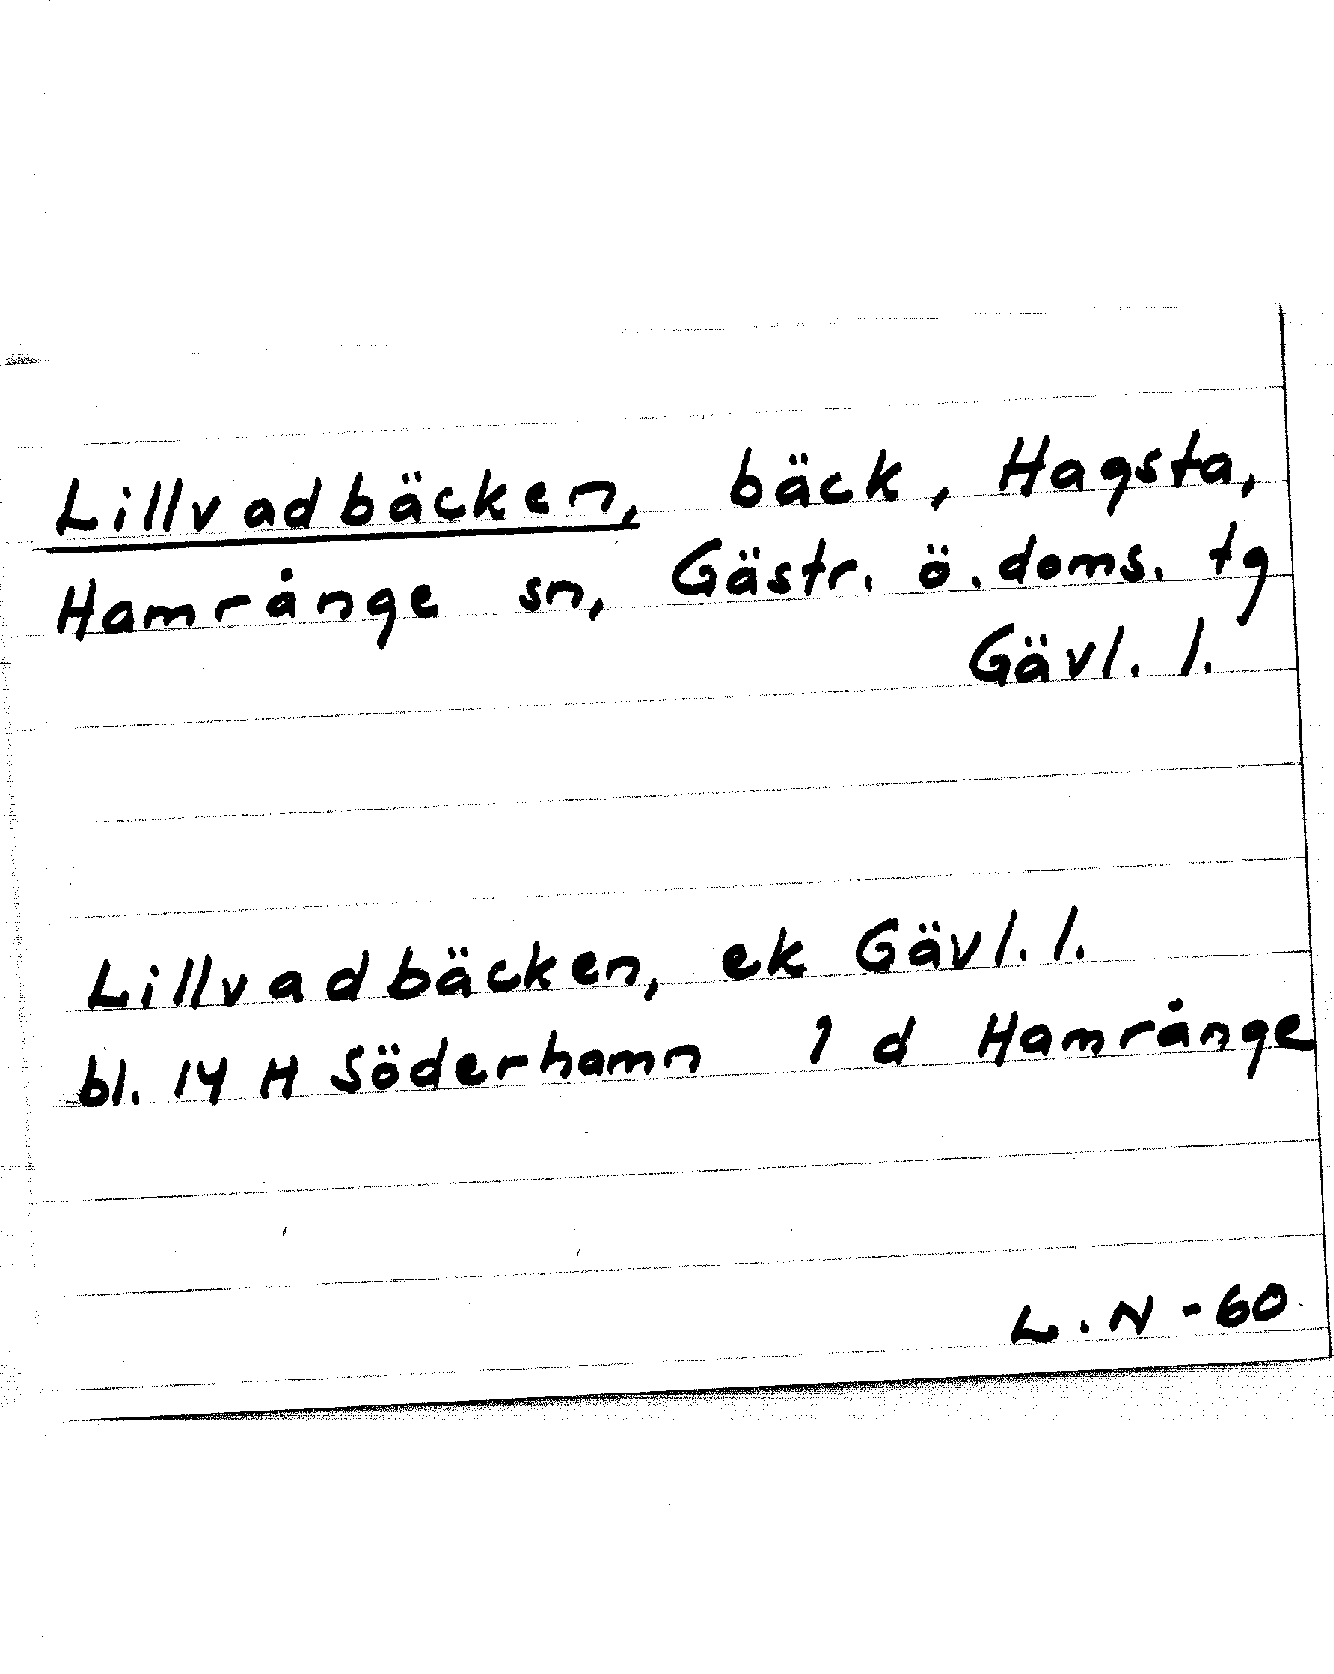 Lillvadbäcken, bäck, Hagsta,
Hamrånge sn, Gästr. ö. doms. tg
Gävl. l.
Lillvadbäcken, ek Gävl. l.
bl. 14 H Söderhamn 1 d Hamrånge
L. N - 60